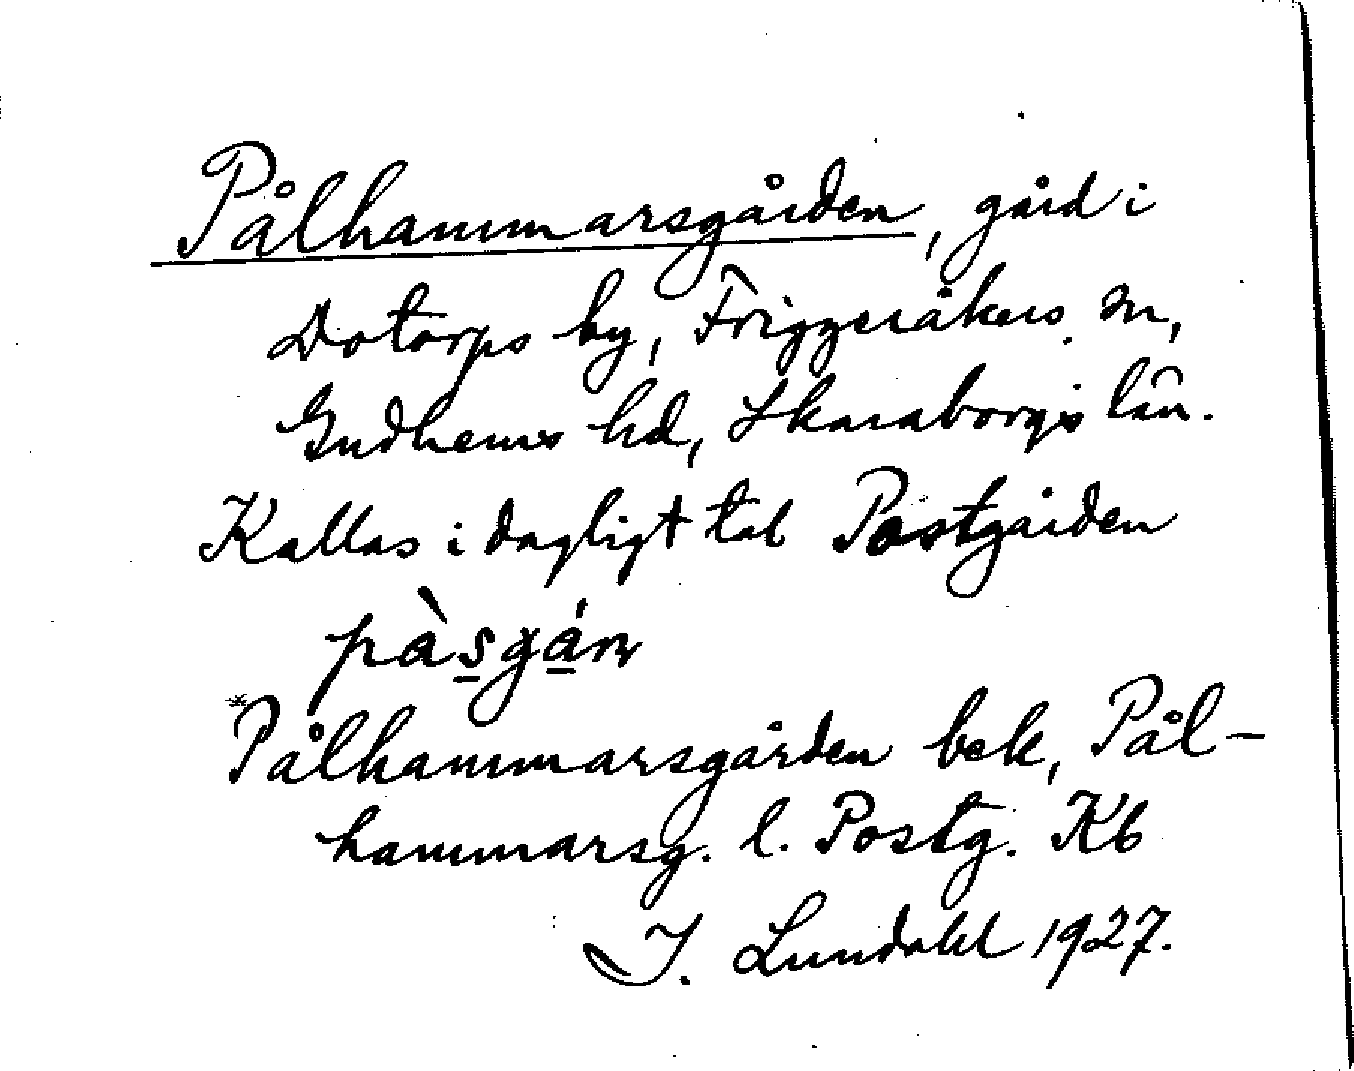 Pålhammarsgården, gård i
Dotorps by, Friggeråkers sn,
Gudhems hd, Skaraborgs län.
Kallas i dagligt tal Postgården
pàsgán
*Pålhammarsgården bek, Pål-
hammarsg. l. Postg. Kb
I. Lundahl 1927.